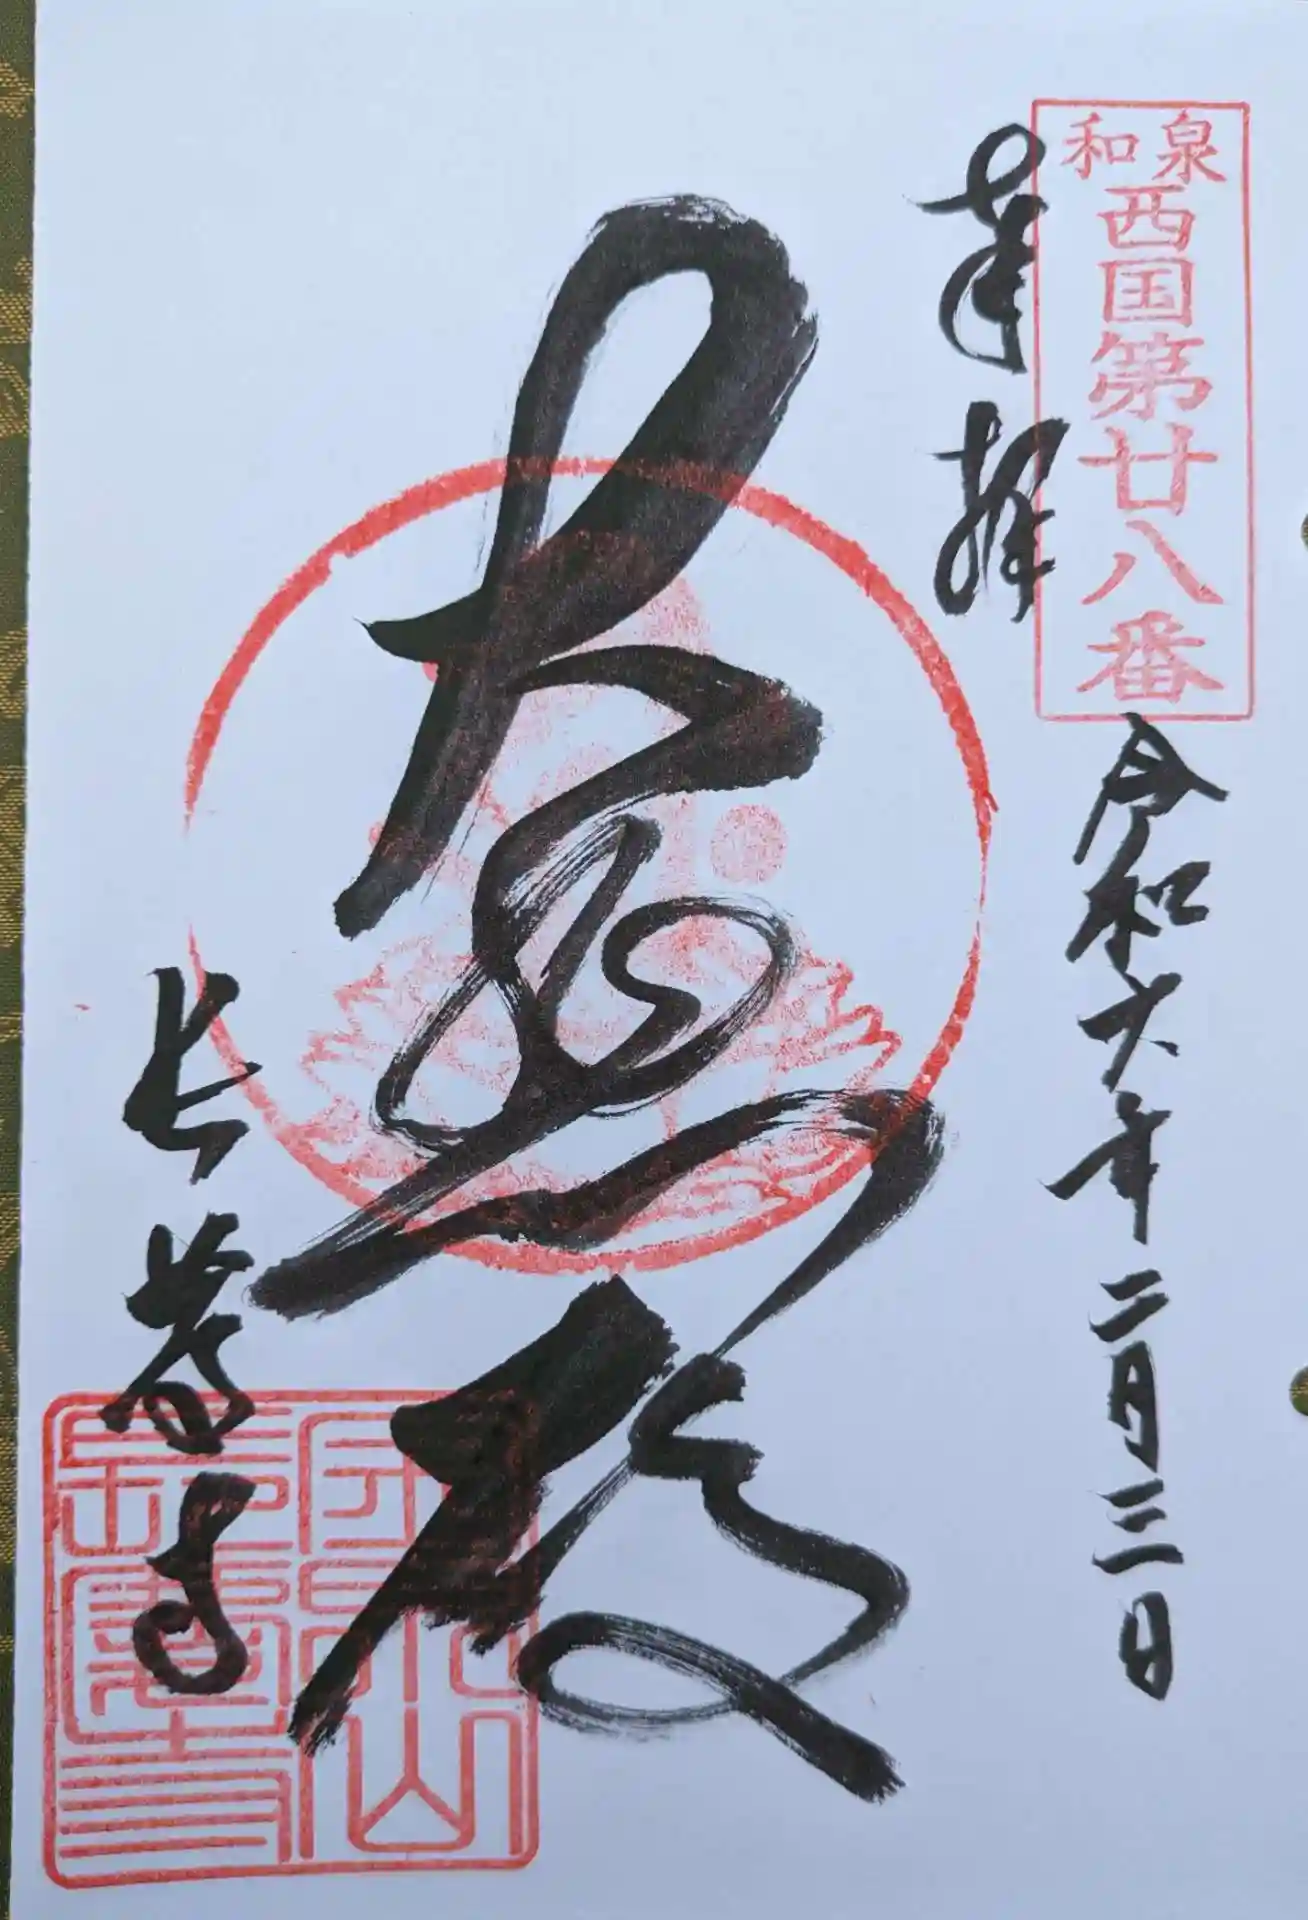 和泉
西国第廿八番
奉拝
令和六年二月三日
大悲殿
長慶寺
金泉山
長慶寺